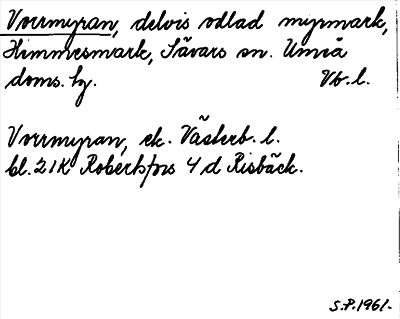 Vorrmyran, delvis odlad myrmark,
Himmesmark, Sävars sn. Umeå
doms. hg. Vb. l.
Vorrmyran, ek. Västerb. l.
bl. 21K Robertsfors 4 d Risbäck.
S.P. 1961.